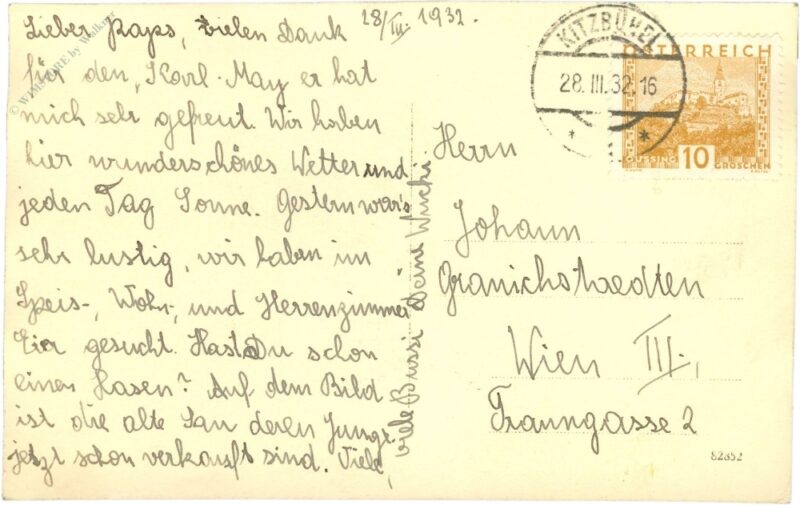 28/III. 1932.
Lieber Paps, vielen Dank
für den „Karl-May er hat
mich sehr gefreut. Wir haben
hier wunderschönes Wetter und
jeden Tag Sonne. Gestern war's
sehr lustig, wir haben im
Speis-, Wohn-, und Herrenzimmer
Eier gesucht. Hast Du schon
einen Hasen? Auf dem Bild
ist die alte Sau deren Junge
jetzt schon verkauft sind. Viele,
viele Bussi Deine
Herrn
Johann
Granichstaedten
Wien III.,
Traungasse 2
KITZBÜHEL
28.III.32.16
ÖSTERREICH
GÜSSING 10 GROSCHEN
82852